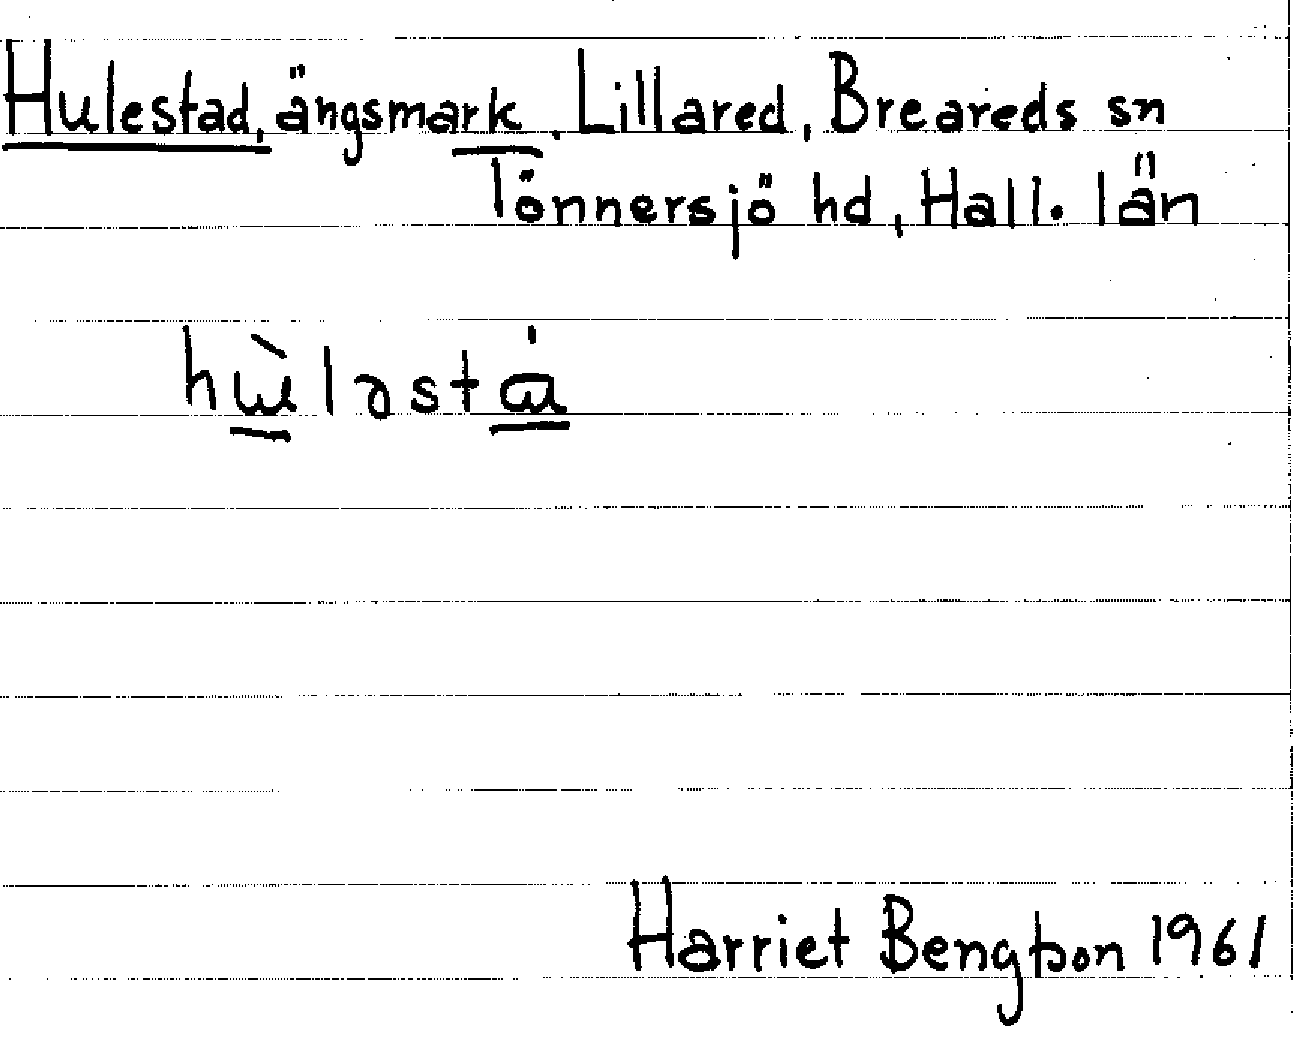 Hulestad, ängsmark. Lillared, Breareds sn
Tönnersjö hd, Hall. län
hɯ̀ləstɑ́
Harriet Bengtson 1961